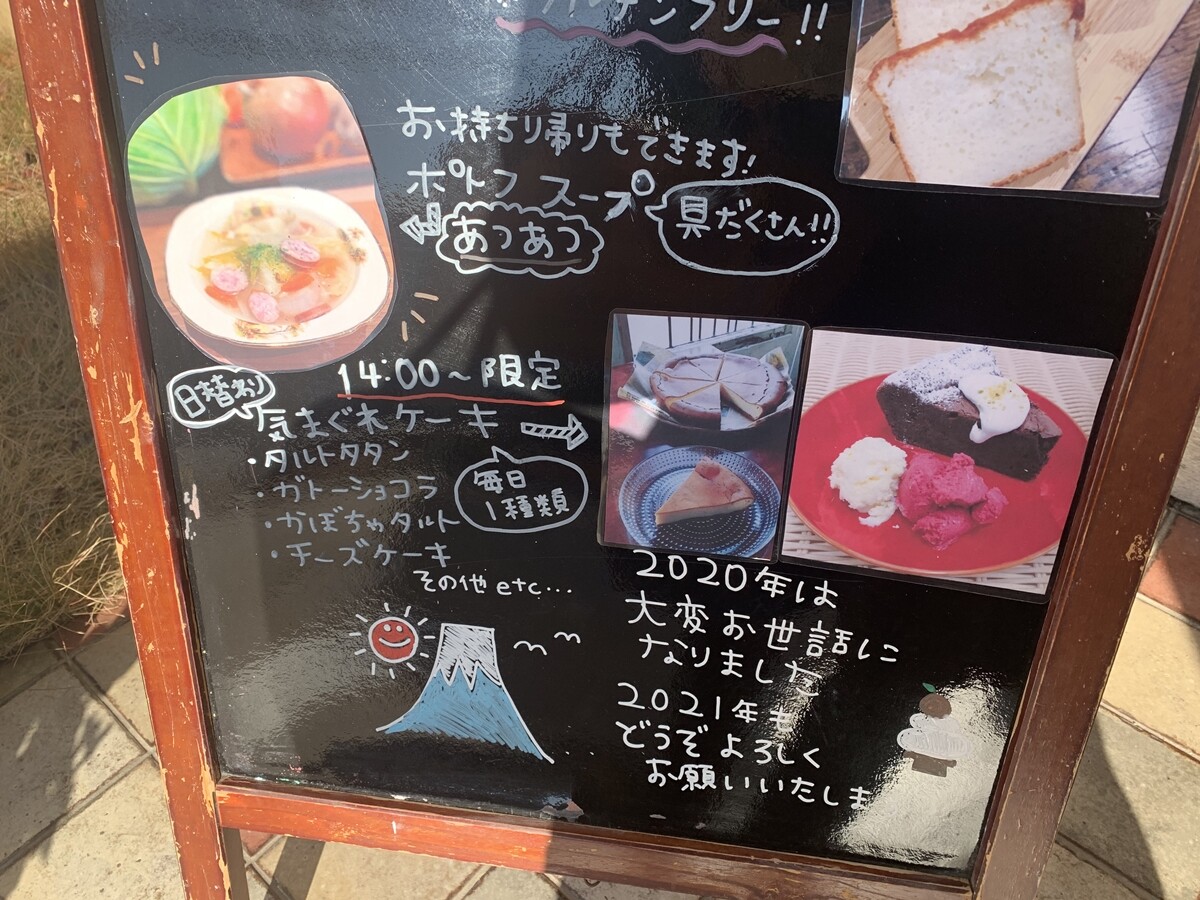 フリー!!
お持ち帰りもできます!
ポトフ スープ
具だくさん!!
あつあつ
14:00～限定
日替わり
気まぐれケーキ
・タルトタタン
・ガトーショコラ
・かぼちゃタルト
・チーズケーキ
その他 etc...
毎日
1種類
2020年は
大変お世話に
なりました
2021年も
どうぞよろしく
お願いいたしま